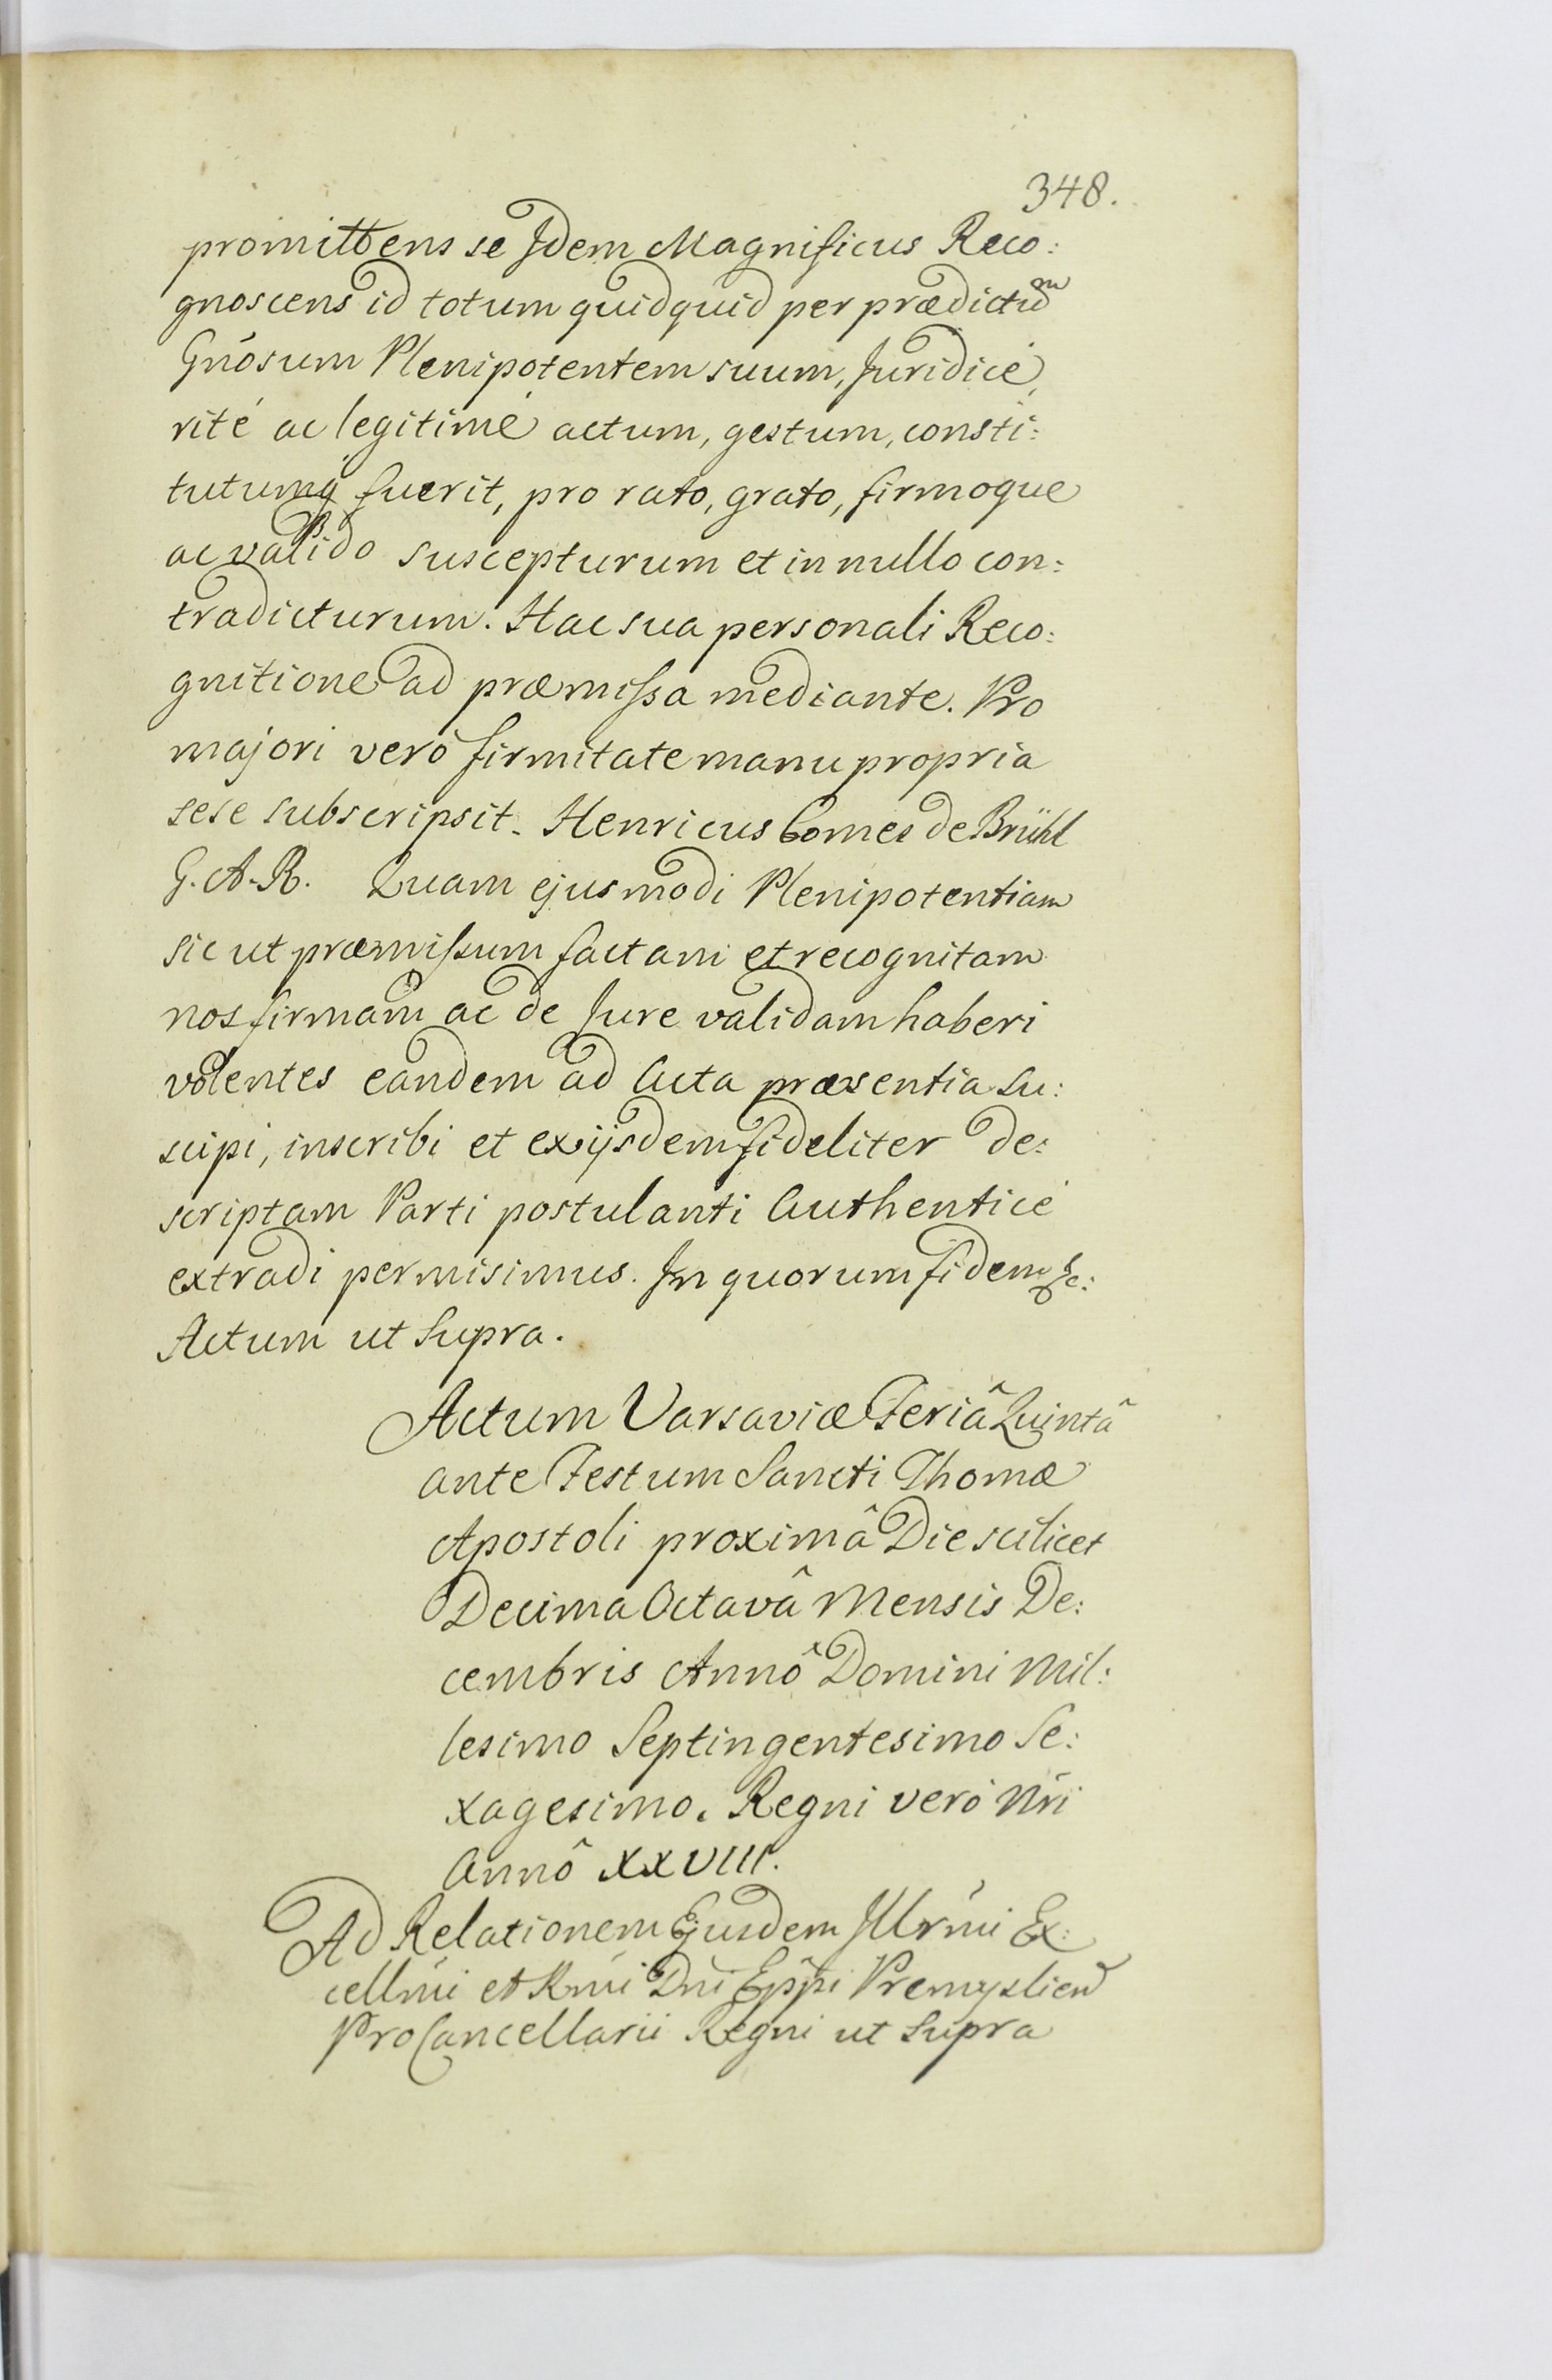 348.
promittens se Idem Magnificus Reco:
gnoscens id totum quidquid per prædictũm
Gnõsum Plenipotentem suum, Juridicè,
ritè ac legitimè actum, gestum, consti:
tutumq́ fuerit, pro rato, grato, firmoque
ac valido suscepturum et in nullo con:
tradicturum. Hac sua personali Reco:
gnitione ad præmissa mediante. Pro
majori verò firmitate manu propria
sese subscripsit. Henricus Comes de Brühl
G. A. R. Quam ejusmodi Plenipotentiam
sic ut præmissum factam et recognitam
nos firmam ac de Jure validam haberi
volentes eandem ad Acta præsentia su:
scipi, inscribi et ex ijsdem fideliter de:
scriptam Parti postulanti Authenticè
extradi permisimus. In quorum fidem &c:
Actum ut supra.
Actum Varsaviæ Feriâ Quintâ
ante Festum Sancti Thomæ
Apostoli proximâ Die scilicet
Decima Octavâ Mensis De:
cembris Annô Domini Mil:
lesimo Septingentesimo Se:
xagesimo. Regni verò Nri
Annô XXVIII.
Ad Relationem Ejusdem Illrmi Ex:
cellmi et Rmi Dni Eppi Premyslien
ProCancellarii Regni ut supra